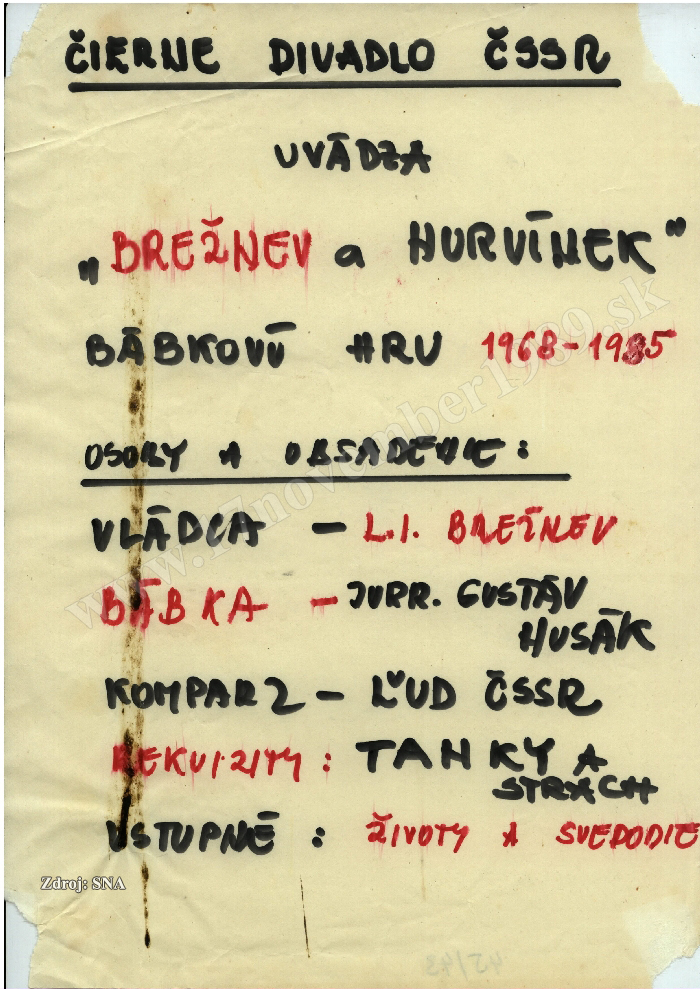 ČIERNE DIVADLO ČSSR
UVÁDZA
„BREŽNEV a HURVÍNEK"
BÁBKOVÚ HRU 1968-1985
OSOBY A OBSADENIE:
VLÁDCA - L.I. BREŽNEV
BÁBKA - JUDR. GUSTÁV
HUSÁK
KOMPARZ - ĽUD ČSSR
REKVIZITY: TANKY A
STRACH
VSTUPNÉ: ŽIVOTY A SVEDODIE
www.17november1989.sk
Zdroj: SNA